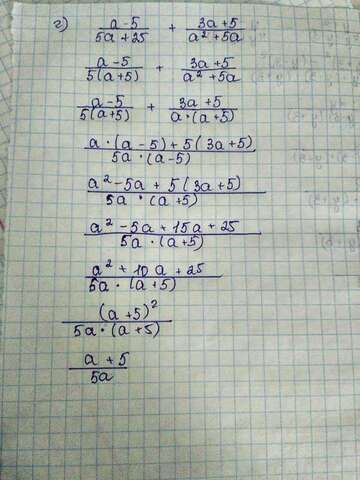 г) (a-5)/(5a+25) + (3a+5)/(a²+5a)
(a-5)/(5(a+5)) + (3a+5)/(a²+5a)
(a-5)/(5(a+5)) + (3a+5)/(a·(a+5))
(a·(a-5)+5(3a+5))/(5a·(a-5))
(a²-5a+5(3a+5))/(5a·(a+5))
(a²-5a+15a+25)/(5a·(a+5))
(a²+10a+25)/(5a·(a+5))
(a+5)²/(5a·(a+5))
(a+5)/(5a)